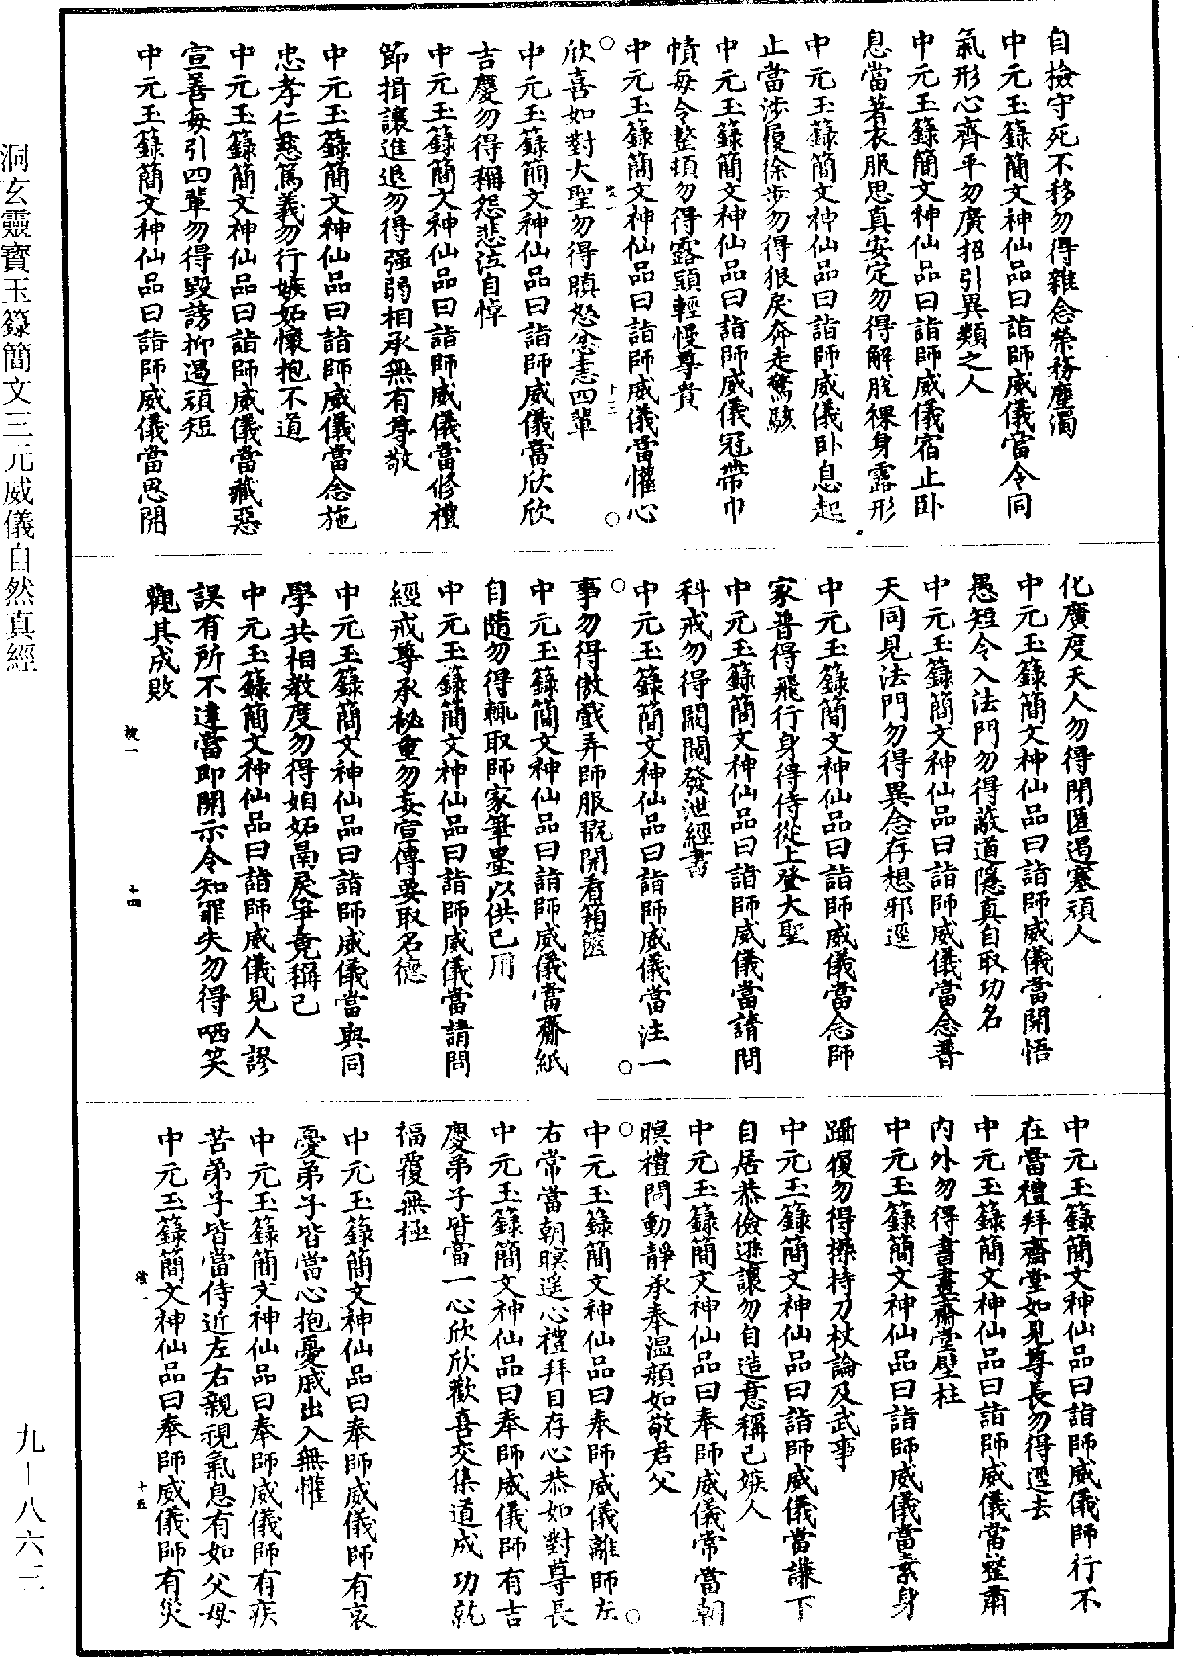 自檢守死不移勿得雜念榮務塵濁
中元玉籙簡文神仙品曰詣師威儀當令同
氣形心齊平勿廣招引異類之人
中元玉籙簡文神仙品曰詣師威儀宿止卧
息當著衣服思真安定勿得解脫裸身露形
中元玉籙簡文神仙品曰詣師威儀卧息起
止當涉履徐步勿得狠戾奔走驚駭
中元玉籙簡文神仙品曰詣師威儀冠帶巾
幘每令整頓勿得露頭輕慢尊貴
中元玉籙簡文神仙品曰詣師威儀當懽心
欣喜如對大聖勿得瞋怒恚四輩
中元玉籙簡文神仙品曰詣師威儀當欣欣
吉慶勿得稱怨悲泣自悼
中元玉籙簡文神仙品曰詣師威儀當修禮
節揖讓進退勿得强弱相承無有尊敬
中元玉籙簡文神仙品曰詣師威儀當念施
忠孝仁慈篤義勿行嫉妬懷抱不道
中元玉籙簡文神仙品曰詣師威儀當藏惡
宣善每引四輩勿得毀謗抑遏頑短
中元玉籙簡文神仙品曰詣師威儀當思開
化廣度天人勿得閉匿遏塞頑人
中元玉籙簡文神仙品曰詣師威儀當開悟
愚短令入法門勿得蔽道隱真自取功名
中元玉籙簡文神仙品曰詣師威儀當念普
天同見法門勿得異念存想邪逕
中元玉籙簡文神仙品曰詣師威儀當念師
家普得飛行身得侍從上登大聖
中元玉籙簡文神仙品曰詣師威儀當請問
科戒勿得闚閱發泄經書
中元玉籙簡文神仙品曰詣師威儀當注一
事勿得傲戲弄師服翫開看箱篋
中元玉籙簡文神仙品曰詣師威儀當齎紙
自隨勿得輒取師家筆墨以供己用
中元玉籙簡文神仙品曰詣師威儀當請問
經戒尊承秘重勿妄宣傳要取名德
中元玉籙簡文神仙品曰詣師威儀當與同
學共相教度勿得妲妬鬲戾爭競稱己
中元玉籙簡文神仙品曰詣師威儀見人謬
誤有所不達當即開示令知罪失勿得哂笑
觀其成敗
中元玉籙簡文神仙品曰詣師威儀師行不
在當禮拜齋堂如見尊長勿得逕去
中元玉籙簡文神仙品曰詣師威儀當整肅
內外勿得書畫齋堂壁柱
中元玉籙簡文神仙品曰詣師威儀當素身
躡履勿得操持刀杖論及武事
中元玉籙簡文神仙品曰詣師威儀當謙下
自居恭儉遜讓勿自造意稱己嫉人
中元玉籙簡文神仙品曰奉師威儀常當朝
暝禮問動靜承奉溫顏如敬君父
中元玉籙簡文神仙品曰奉師威儀離師左
右常當朝暝遥心禮拜目存心恭如對尊長
中元玉籙簡文神仙品曰奉師威儀師有吉
慶弟子皆當一心欣欣歡喜交集道成功就
福覆無極
中元玉籙簡文神仙品曰奉師威儀師有哀
憂弟子皆當心抱憂戚出入無懽
中元玉籙簡文神仙品曰奉師威儀師有疾
苦弟子皆當侍近左右親視氣息有如父母
中元玉籙簡文神仙品曰奉師威儀師有災
十三
十四
十五
洞玄靈寶玉籙簡文三元威儀自然真經
九—八六三